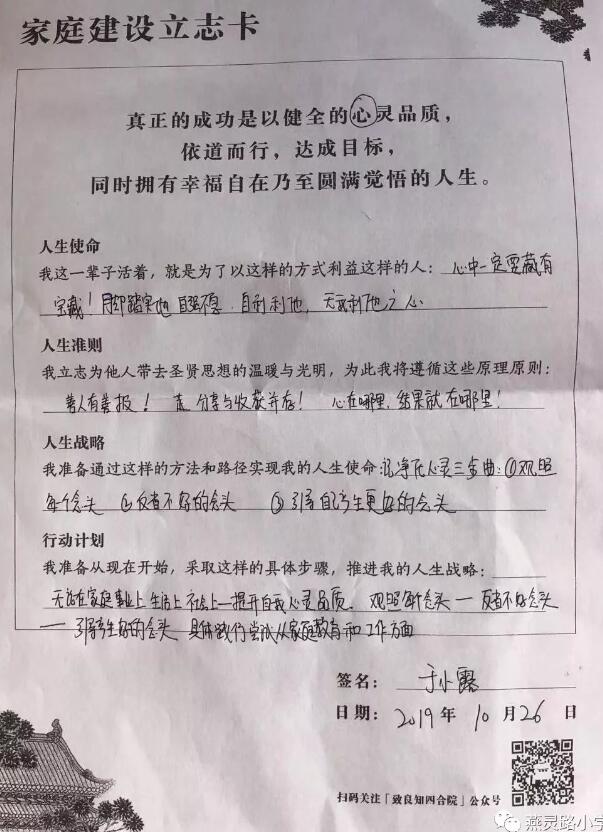 家庭建设立志卡
真正的成功是以健全的心灵品质，
依道而行，达成目标，
同时拥有幸福自在乃至圆满觉悟的人生。
人生使命
我这一辈子活着，就是为了以这样的方式利益这样的人：心中一定要藏有
宝藏！脚踏实地 自强不息 自利利他，无我利他之心
人生准则
我立志为他人带去圣贤思想的温暖与光明，为此我将遵循这些原理原则：
善人有善报！ 分享与收获并存！ 心在哪里，结果就在哪里！
人生战略
我准备通过这样的方法和路径实现我的人生使命：净化心灵三部曲：①观照
每个念头 ②反省不好的念头 ③引导自己产生更好的念头
行动计划
我准备从现在开始，采取这样的具体步骤，推进我的人生战略：
无论在家庭事业上生活上社会上一提升自我心灵品质. 观照每个念头—反省不好念头
—引导产生好的念头 具体践行尝试从家庭教育和工作方面
签名：于小露
日期：2019年10月26日
扫码关注「致良知四合院」公众号
燕灵路小学